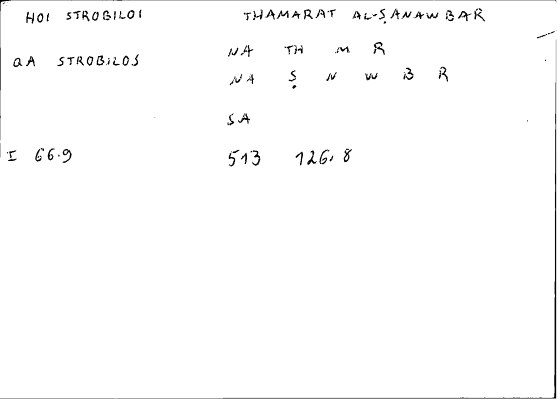 HOI STROBILOI THAMARAT AL-ṢANAWBAR
NA TH M R
QA STROBILOS
NA Ṣ N W B R
SA
I 66.9 513 126,8